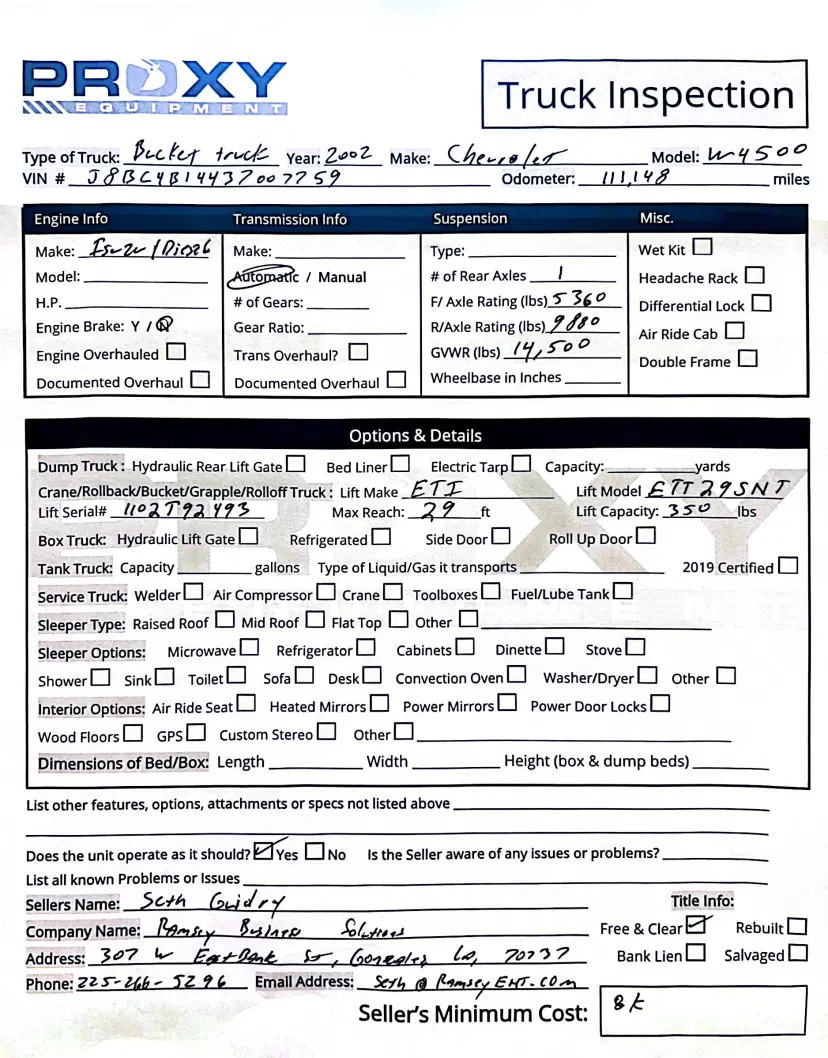 PROXY
EQUIPMENT
Truck Inspection
Type of Truck: Bucket truck Year: 2002 Make: Chevrolet Model: W4500
VIN # J8BC4B14437007759 Odometer: 111,148 miles
Engine Info Transmission Info Suspension Misc.
Make: Isuzu / Diesel Make: Type: Wet Kit ☐
Model: Automatic / Manual # of Rear Axles 1 Headache Rack ☐
H.P. # of Gears: F/ Axle Rating (lbs) 5360 Differential Lock ☐
Engine Brake: Y / N Gear Ratio: R/Axle Rating (lbs) 9880 Air Ride Cab ☐
Engine Overhauled ☐ Trans Overhaul? ☐ GVWR (lbs) 14,500 Double Frame ☐
Documented Overhaul ☐ Documented Overhaul ☐ Wheelbase in Inches
Options & Details
Dump Truck: Hydraulic Rear Lift Gate ☐ Bed Liner ☐ Electric Tarp ☐ Capacity: yards
Crane/Rollback/Bucket/Grapple/Rolloff Truck: Lift Make ETI Lift Model ETT29SNT
Lift Serial# 1102T92493 Max Reach: 29 ft Lift Capacity: 350 lbs
Box Truck: Hydraulic Lift Gate ☐ Refrigerated ☐ Side Door ☐ Roll Up Door ☐
Tank Truck: Capacity gallons Type of Liquid/Gas it transports 2019 Certified ☐
Service Truck: Welder ☐ Air Compressor ☐ Crane ☐ Toolboxes ☐ Fuel/Lube Tank ☐
Sleeper Type: Raised Roof ☐ Mid Roof ☐ Flat Top ☐ Other ☐
Sleeper Options: Microwave ☐ Refrigerator ☐ Cabinets ☐ Dinette ☐ Stove ☐
Shower ☐ Sink ☐ Toilet ☐ Sofa ☐ Desk ☐ Convection Oven ☐ Washer/Dryer ☐ Other ☐
Interior Options: Air Ride Seat ☐ Heated Mirrors ☐ Power Mirrors ☐ Power Door Locks ☐
Wood Floors ☐ GPS ☐ Custom Stereo ☐ Other ☐
Dimensions of Bed/Box: Length Width Height (box & dump beds)
List other features, options, attachments or specs not listed above
Does the unit operate as it should? ☑ Yes ☐ No Is the Seller aware of any issues or problems?
List all known Problems or Issues
Sellers Name: Seth Guidry Title Info:
Company Name: Ramsey Business Solutions Free & Clear ☑ Rebuilt ☐
Address: 307 W EastBank St, Gonzales La, 70737 Bank Lien ☐ Salvaged ☐
Phone: 225-266-5296 Email Address: Seth @ RamseyEHT.COm
Seller's Minimum Cost: 8k